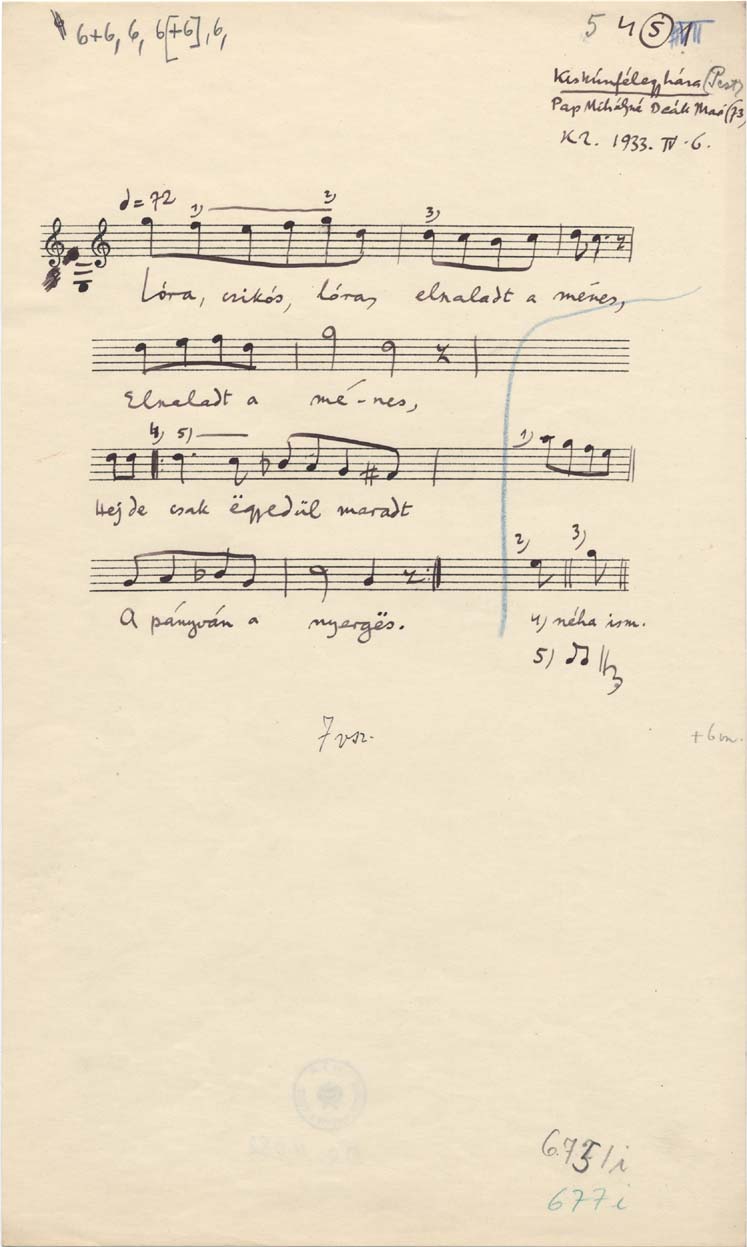 6+6, 6, 6[+6], 6,
5 4 5 1
Kiskúnfélegyháza (Pest)
Pap Mihályné Deák Mari (73)
KZ. 1933. IV. 6.
♩ = 72
1) 2) 3)
Lóra, csikós, lóra, elszaladt a ménes,
Elszaladt a mé-nes,
4) 5) 1)
Hejde csak ëgyedül maradt
2) 3)
A pányván a nyergës. 4) néha ism.
5)
7 vsz.
+6 m.
677 i